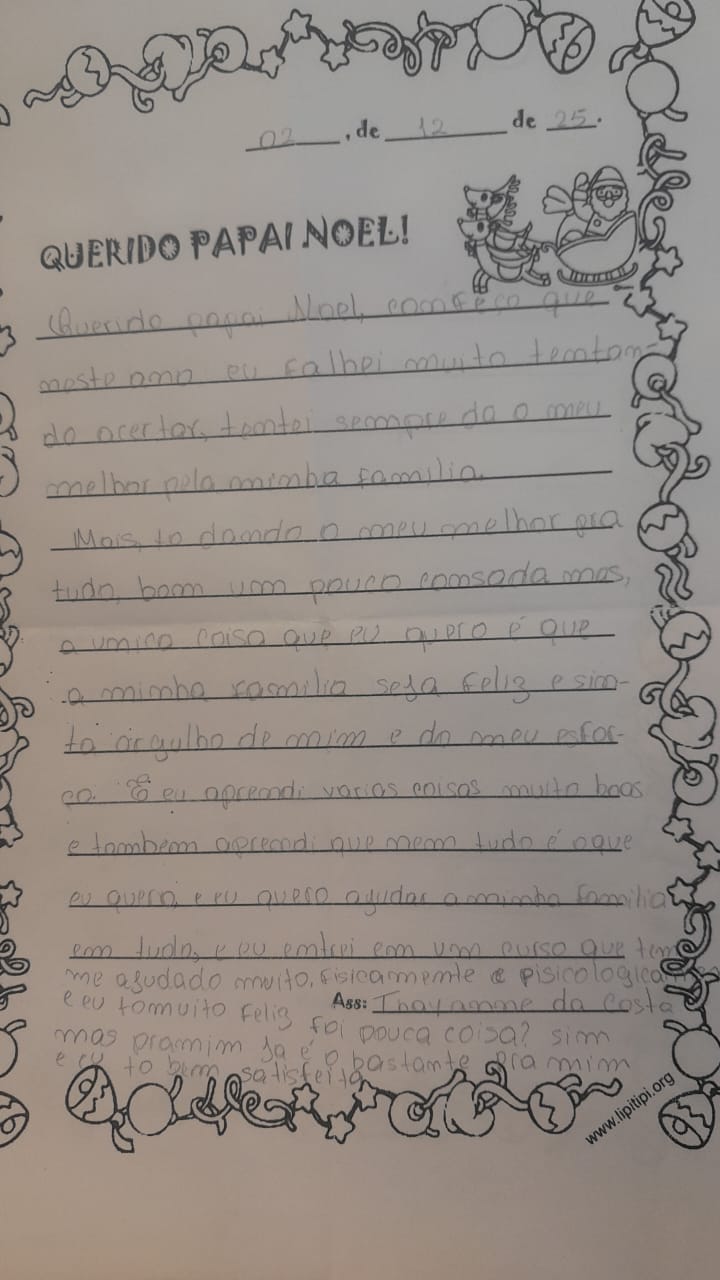 02, de 12 de 25.
QUERIDO PAPAI NOEL!
Querido papai Noel, comfeço que
neste ano eu falhei muito tentan-
do acertar, tentei sempre da o meu
melhor pela minha familia.
Mais, to dando o meu melhor pra
tudo, bom um pouco consada mas,
a unica coisa que eu quero é que
a minha familia seja feliz e sin-
ta orgulho de mim e do meu esfor-
ço. E eu aprendi varias coisas muito boas
e tambem aprendi que nem tudo é oque
eu quero, e eu quero ajudar a minha familia
em tudo, e eu entrei em um curso que tem
me ajudado muito, fisicamente e pisicologicamente
e eu tomuito feliz Ass: Thayanne da Costa
foi pouca coisa? sim
mas pramim ja é o bastante pra mim
e eu to bem satisfeita
www.lipitipi.org